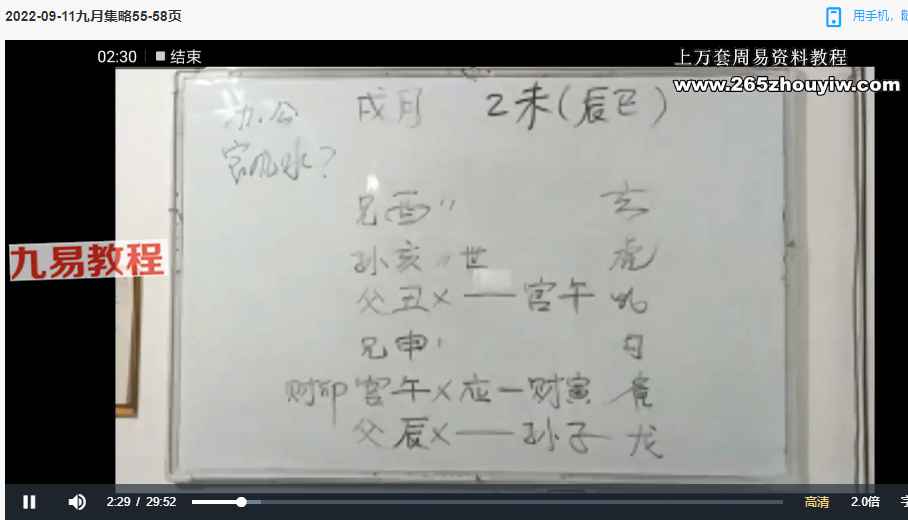 2022-09-11九月集略55-58页
用手机，
02:30 结束
上万套周易资料教程
www.265zhouyiw.com
办公 戌月 乙未(辰巳)
室风水?
兄酉〃 玄
孙亥〃世 虎
父丑×——官午
兄申′ 勾
财卯 官午×应—财寅
父辰×——孙子 龙
九易教程
2:29 / 29:52
高清 2.0倍 字